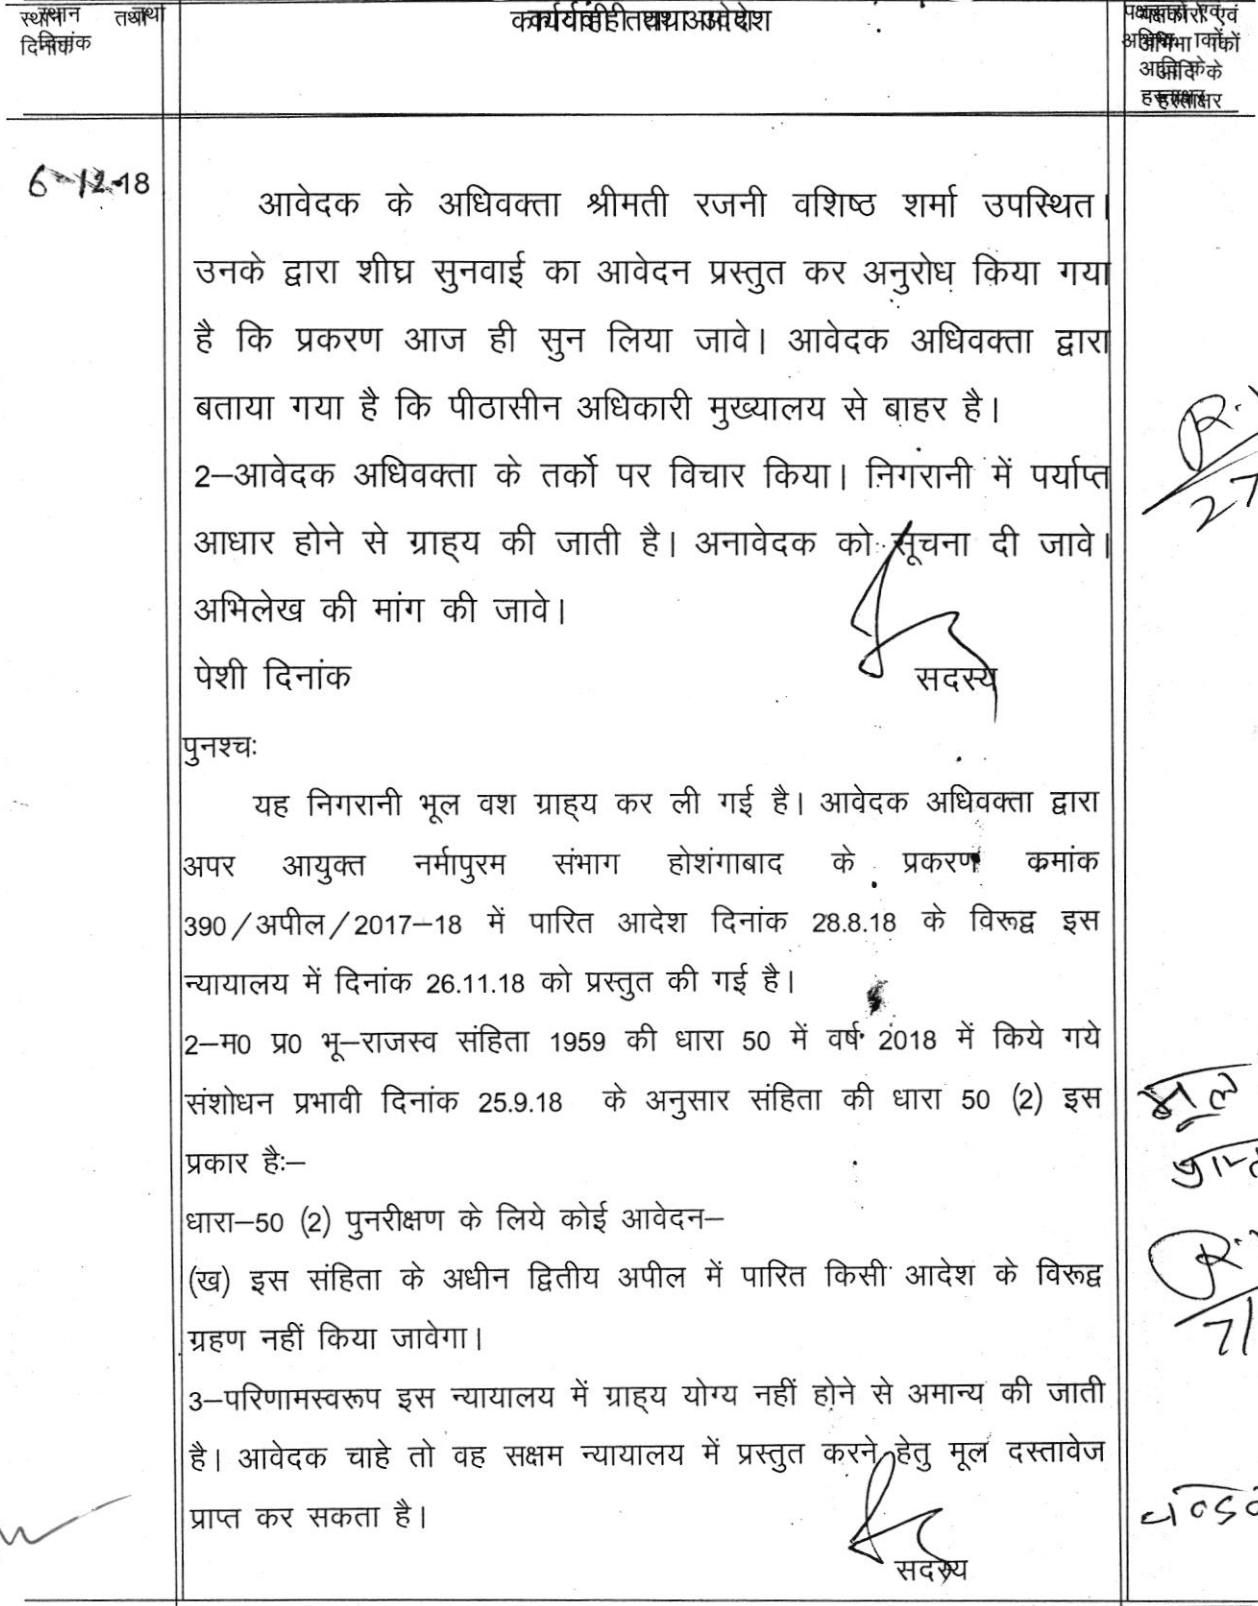 स्थान तथा
दिनांक
कार्यवाही तथा आदेश
पक्षकारों एवं
अभिभाषकों
आदि के
हस्ताक्षर
6-12-18
आवेदक के अधिवक्ता श्रीमती रजनी वशिष्ठ शर्मा उपस्थित।
उनके द्वारा शीघ्र सुनवाई का आवेदन प्रस्तुत कर अनुरोध किया गया
है कि प्रकरण आज ही सुन लिया जावे। आवेदक अधिवक्ता द्वारा
बताया गया है कि पीठासीन अधिकारी मुख्यालय से बाहर है।
2—आवेदक अधिवक्ता के तर्को पर विचार किया। निगरानी में पर्याप्त
आधार होने से ग्राह्य की जाती है। अनावेदक को सूचना दी जावे।
अभिलेख की मांग की जावे।
पेशी दिनांक
सदस्य
पुनश्चः
यह निगरानी भूल वश ग्राह्य कर ली गई है। आवेदक अधिवक्ता द्वारा
अपर आयुक्त नर्मापुरम संभाग होशंगाबाद के प्रकरण कमांक
390/अपील/2017—18 में पारित आदेश दिनांक 28.8.18 के विरूद्व इस
न्यायालय में दिनांक 26.11.18 को प्रस्तुत की गई है।
2—म0 प्र0 भू—राजस्व संहिता 1959 की धारा 50 में वर्ष 2018 में किये गये
संशोधन प्रभावी दिनांक 25.9.18 के अनुसार संहिता की धारा 50 (2) इस
प्रकार हैः—
धारा—50 (2) पुनरीक्षण के लिये कोई आवेदन—
(ख) इस संहिता के अधीन द्वितीय अपील में पारित किसी आदेश के विरूद्व
ग्रहण नहीं किया जावेगा।
3—परिणामस्वरूप इस न्यायालय में ग्राह्य योग्य नहीं होने से अमान्य की जाती
है। आवेदक चाहे तो वह सक्षम न्यायालय में प्रस्तुत करने हेतु मूल दस्तावेज
प्राप्त कर सकता है।
सदस्य
मूल